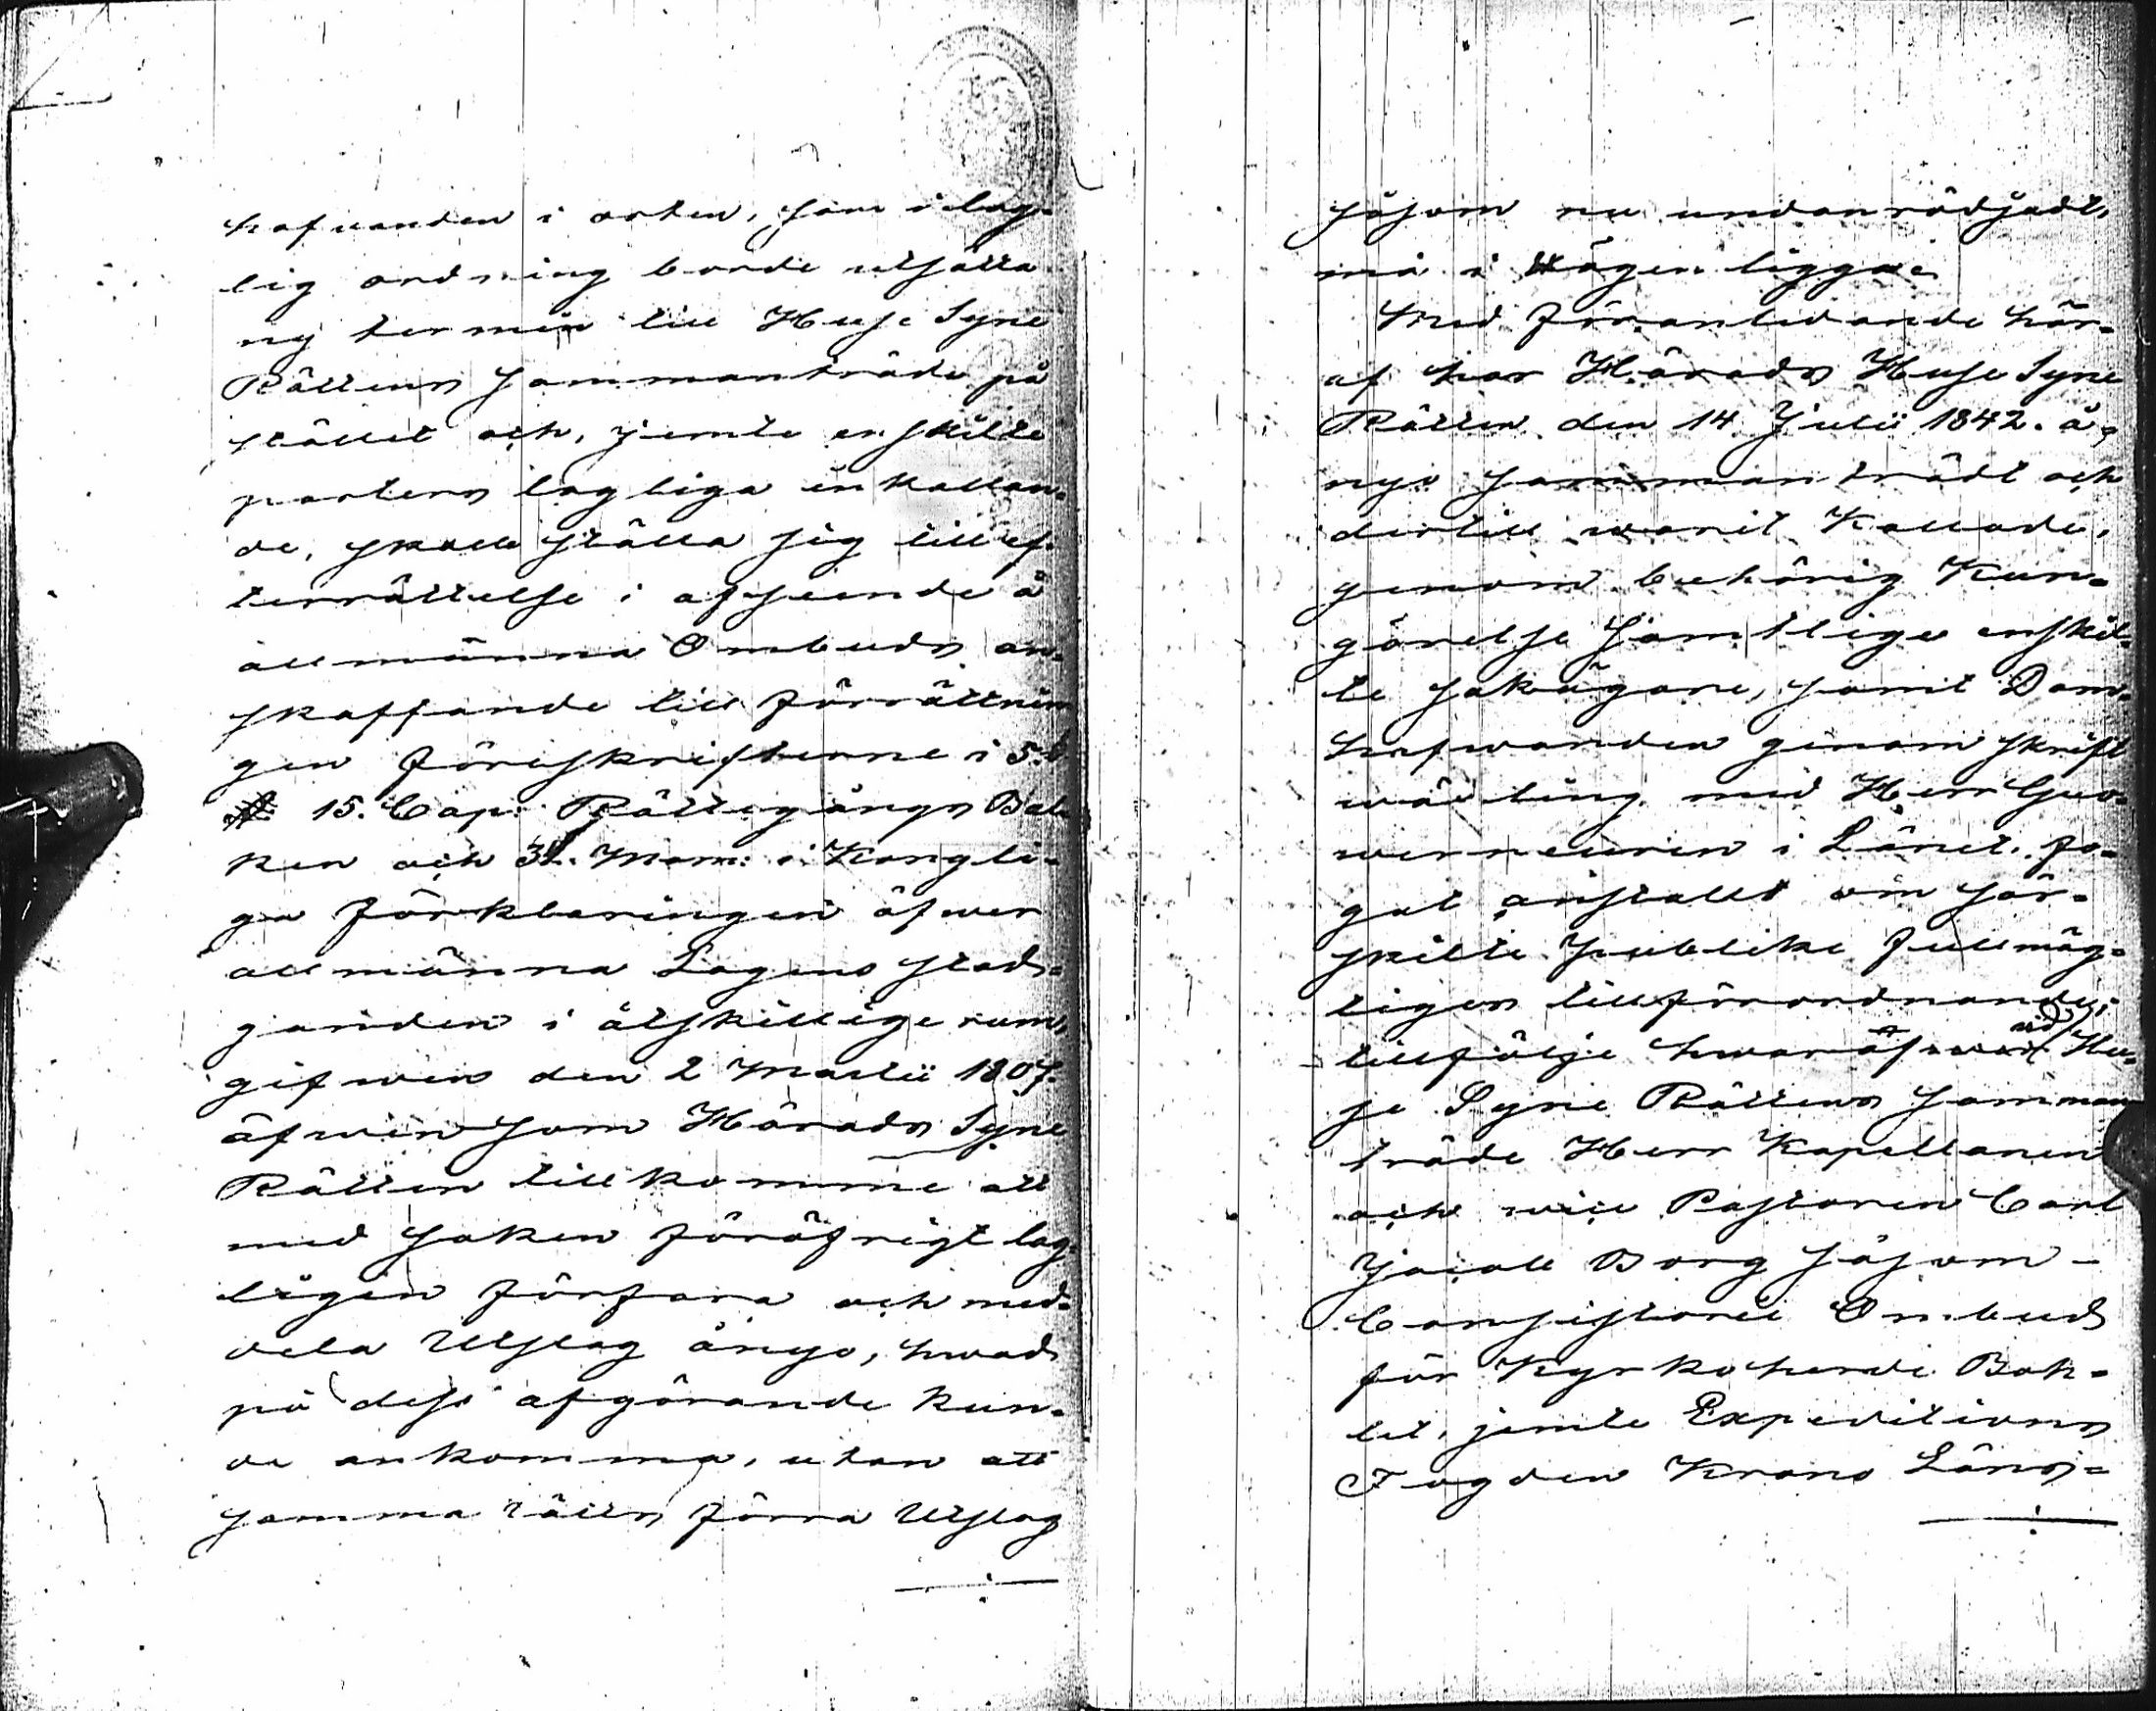 hafvanden i orten, som i lag-
lig ordning borde utsätta
ny termin till Huse Syne
Rättens sammanträde på
stället och, jemte enskilte
parters lagliga inkallan-
de, skulle ställa sig till ef-
terrättelse i afseende å
allmänna Ombuds an-
skaffande till förrättnin
gen föreskrifterne i 5. §
15. Cap: Rättegångs Bal-
ken och 31. Mom: i Kongli-
ga förklaringen öfwer
allmänna Lagens stad-
ganden i åtskillige rum,
gifwen den 2 Martii 1807.
äfwen som Härads Syne
Rätten tillkomme att
med saken föröfrigt lag-
ligen förfara och med-
dela Utslag ånyo, hwad
på dess afgörande kun-
de ankomma, utan att
samma rätts förra Utslag
såsom nu undanrödjadt,
må i wägen ligga.
Med föranledande här-
af har Härads Huse Syne
Rätten den 14 Julii 1842. å
nyo sammanträdt och
dertill warit kallade,
genom behörig Kun-
görelse samtlige enskil-
te sakägare, samt Dom-
hafwanden genom skrift
wäxling med Herr Guv-
werneuren i Länet. fo-
gat anstalt om sär-
skilte publike fullmäg-
tiges tillförordnande;
tillfölje hwaraf wid Hu-
se Syne Rättens samman
träde Herr Kapellanen
och vice Pastoren Carl
Jacob Borg såsom
Consistorii Ombud
för Kyrkoherde Bok-
let, jemte Expeditions
Fogden Krono Läns-